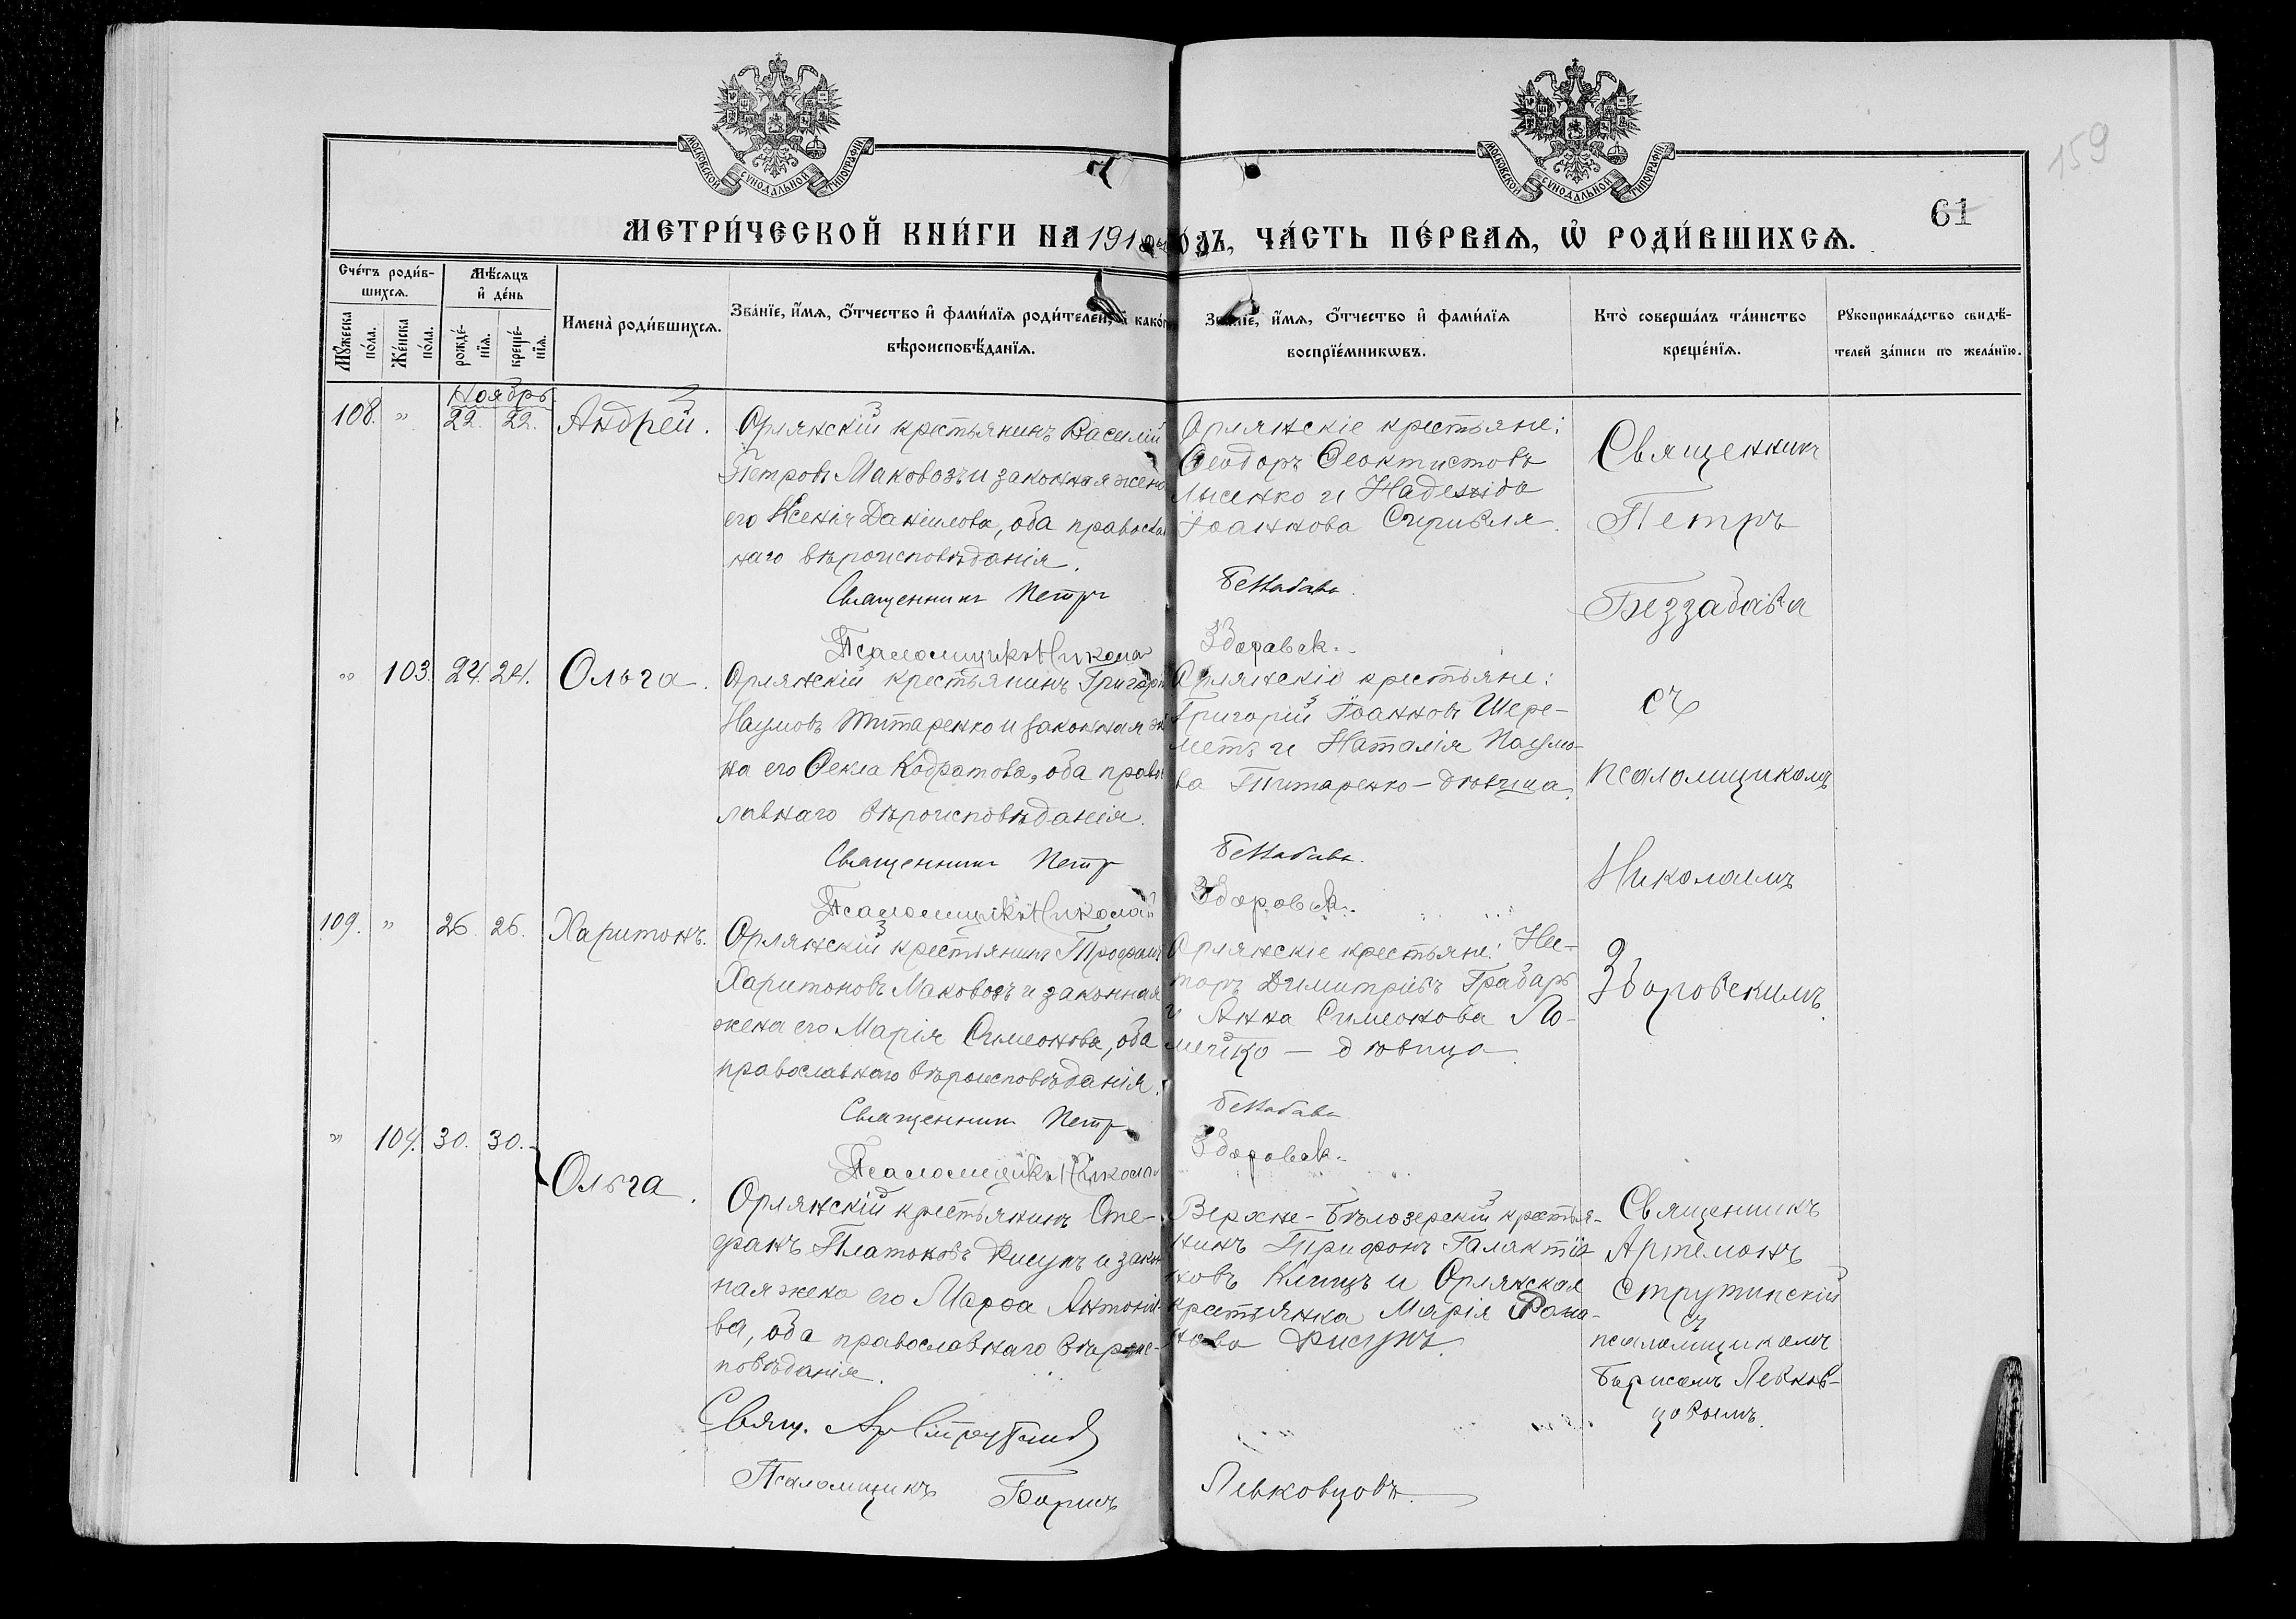 МОСКОВСКОЙ СУНОДАЛЬНОЙ ТИПОГРАФІИ
МОСКОВСКОЙ СУНОДАЛЬНОЙ ТИПОГРАФІИ
159
61
МЕТРИ́ЧЕСКОЙ КНИ́ГИ НА 191 ОДЪ, ЧА́СТЬ ПЕ́РВАѦ, Ѡ҆ РОДИ́ВШИХСѦ.
Сче́тъ роди́в-
шихсѧ.
Мѣ́сѧцъ
и҆ де́нь
Мꙋ́жеска
по́ла.
Же́нска
по́ла.
рожде́-
нїѧ.
креще́-
нїѧ.
Имена̀ роди́вшихсѧ.
Зва́нїе, и҆́мѧ, о҆́тчество и҆ фами́лїѧ роди́телей, и҆ како́г
вѣроисповѣ́данїѧ.
Зва́нїе, и҆́мѧ, о҆́тчество и҆ фами́лїѧ
воспрїе́мникѡвъ.
Кто̀ соверша́лъ та́инство
креще́нїѧ.
Рꙋкоприкла́дство свидѣ́-
телей за́писи по жела́нїю.
Ноябрь
108. " 22. 22. Андрей.
Орлянскій крестьянинъ Василій
Петровъ Маковозъ и законная жена
его Ксенія Даніилова, оба православ
наго вѣроисповѣданія.
Священникъ Петръ
Псаломщикъ Никола
Орлянскіе крестьяне:
Ѳеодоръ Ѳеоктистовъ
Лысенко и Надежда
Іоаннова
Беззабава.
Здоровск.
Священникъ
Петръ
Беззабава
съ
псаломщикомъ
Николаемъ
Здоровскимъ.
" 103. 24. 24. Ольга.
Орлянскій крестьянинъ Григорій
Наумовъ Титаренко и законная же
на его Ѳекла Кодратова, оба право
лавнаго вѣроисповѣданія.
Священникъ Петр
Псаломщикъ Николай
Орлянскіе крестьяне:
Григорій Іоанновъ Шере-
метъ и Наталія Наумо-
ва Титаренко - дѣвица.
Беззабава.
Здоровск.
109. " 26. 26. Харитонъ.
Орлянскій крестьянинъ Трофимъ
Харитоновъ Маковозъ и законная
жена его Марія Симеонова, оба
православнаго вѣроисповѣданія.
Священник Петр
Псаломщикъ Николай
Орлянскіе крестьяне: Нес-
торъ Димитріевъ Грабарь
и Анна Симеонова Ло-
мейко - дѣвица.
Беззабава
Здоровск.
" 104. 30. 30. Ольга.
Орлянскій крестьянинъ Сте-
фанъ Платоновъ Рисунъ и закон
ная жена его Марѳа Антоніе
ва, оба православнаго вѣроис-
повѣданія.
Свящ. Ар Струтинскій
Псаломщикъ Борисъ
Верхне-Бѣлозерскій крестья-
нинъ Трифонъ Галактіо
новъ Клищъ и Орлянская
крестьянка Марія Рома-
нова Рисунъ.
Левковцовъ.
Священникъ
Артемонъ
Струтинскій
съ
псаломщикомъ
Борисомъ Левков-
цовымъ.